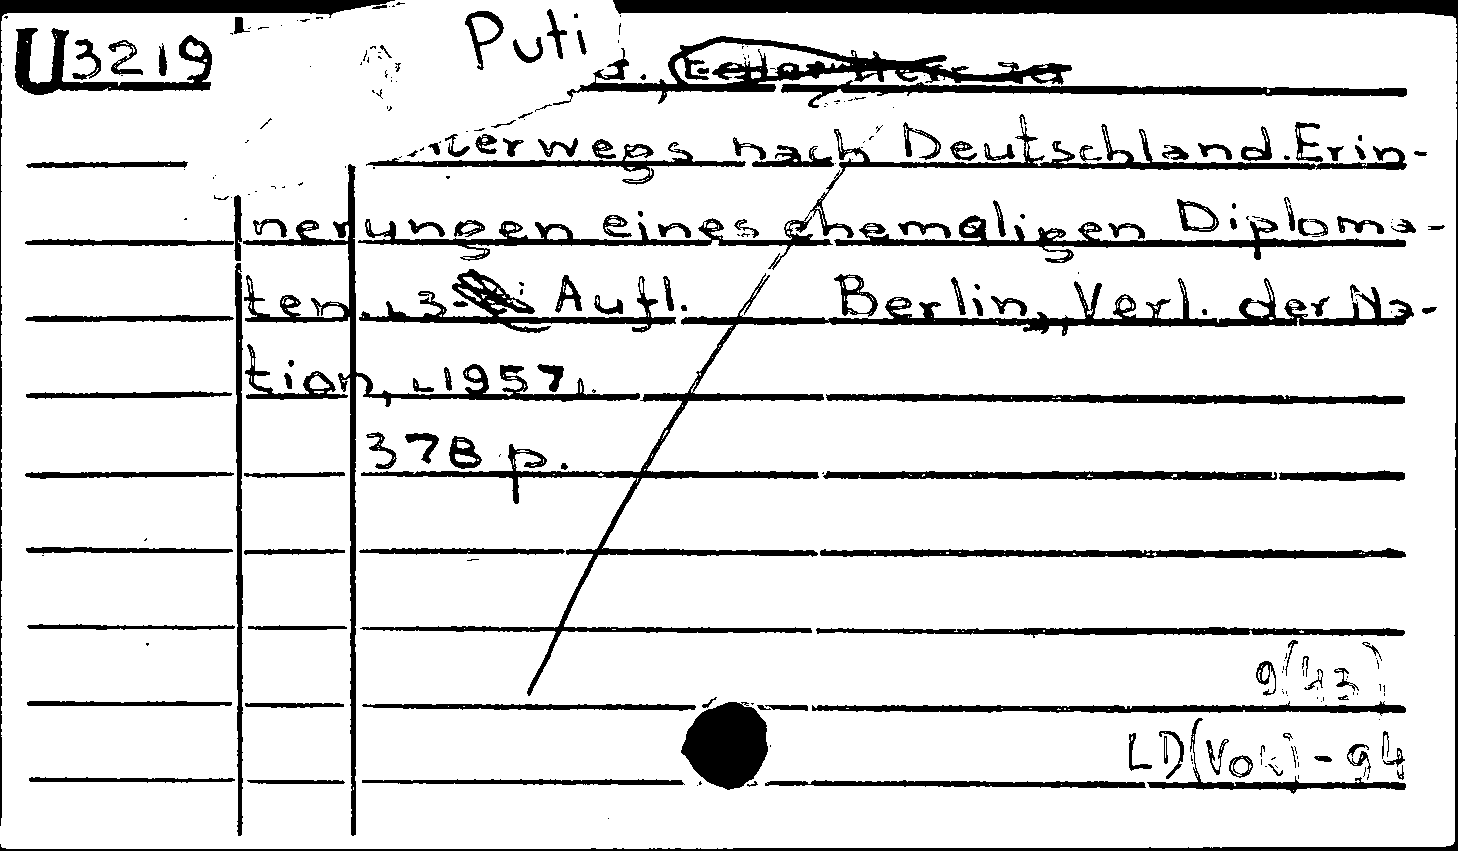 U3219
Puti
terwegs nach Deutschland. Erin-
nerungen eines ehemaligen Diploma-
ten. 3. Aufl. Berlin, Verl. der Na-
tion, 1957.
378 p.
9(43)
LD(Vok)-94